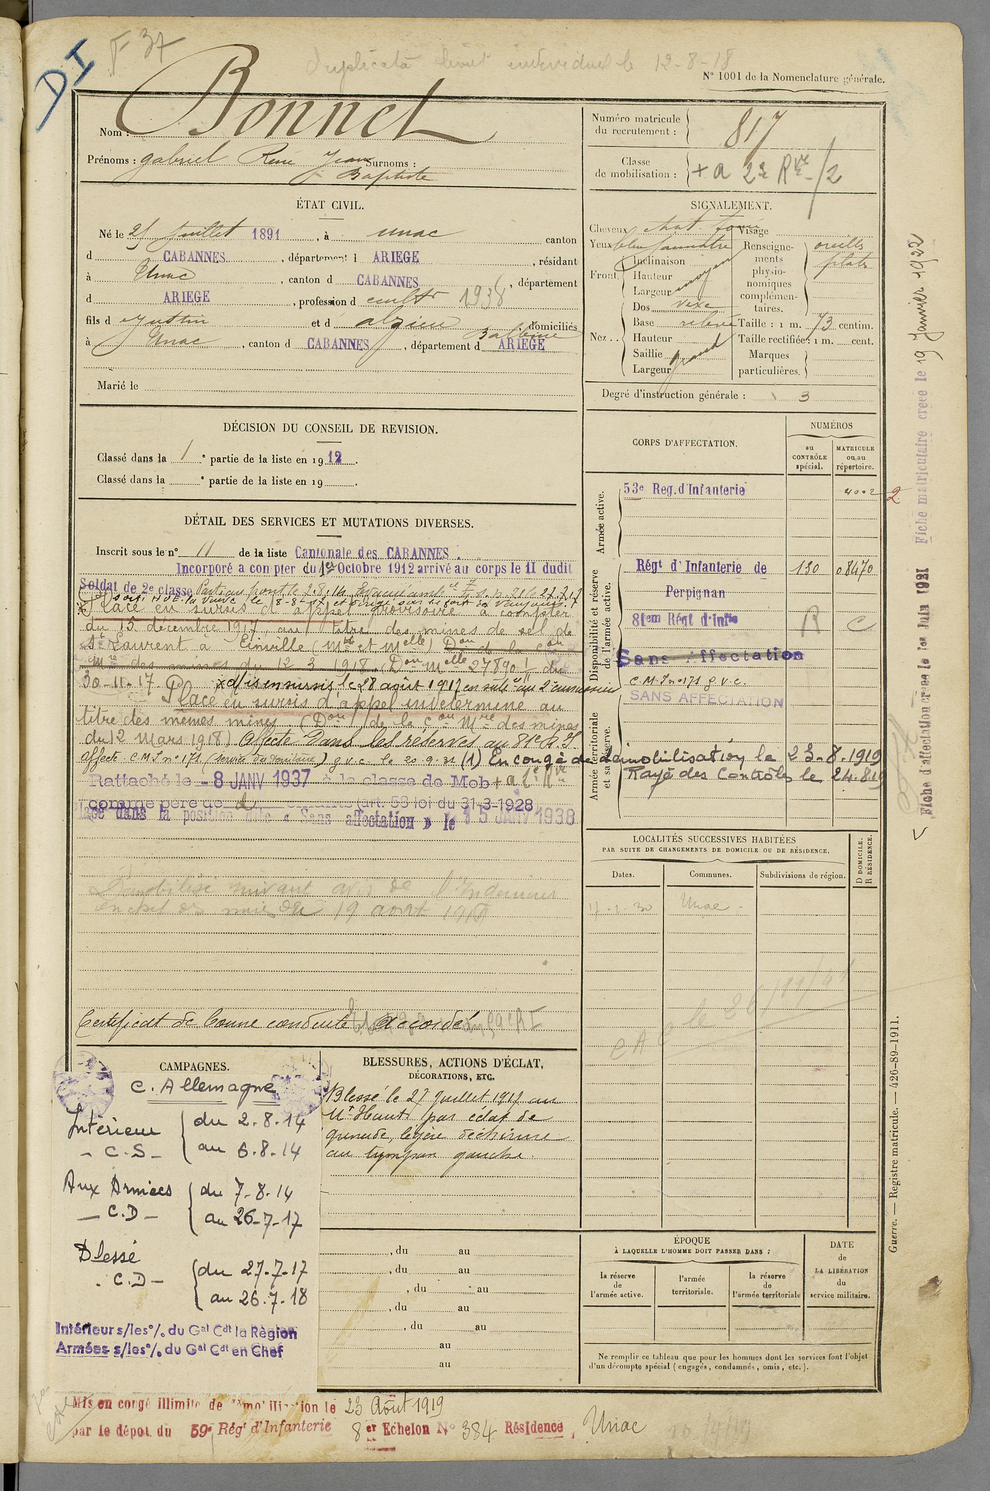 DI
F 37
Duplicata livret individuel le 12-8-18
N° 1001 de la Nomenclature générale.
Nom : Bonnet
Prénoms : Gabriel René Jean Baptiste Surnoms :
Numéro matricule du recrutement : 817
Classe de mobilisation : + a 2e Rve /2
ÉTAT CIVIL.
Né le 25 Juillet 1891, à Unac canton
d CABANNES, département d ARIEGE, résidant
à Unac, canton d CABANNES, département
d ARIEGE, profession d cultr 1938
fils d Justin et d domiciliés
à Unac, canton d CABANNES, département d ARIEGE
Marié le
SIGNALEMENT.
Cheveux chat
Yeux
Front
Inclinaison
Hauteur
Largeur moyen
Nez
Dos vexe
Base relevé
Hauteur
Saillie
Largeur grand
Visage
Renseignements physionomiques complémentaires. oreilles plates
Taille : 1 m. 73 centim.
Taille rectifiée : 1 m. cent.
Marques particulières.
Degré d'instruction générale : 3
DÉCISION DU CONSEIL DE REVISION.
Classé dans la 1e partie de la liste en 1912.
Classé dans la e partie de la liste en 19 .
DÉTAIL DES SERVICES ET MUTATIONS DIVERSES.
Inscrit sous le n° 11 de la liste Cantonale des CABANNES.
Incorporé a compter du 1er Octobre 1912 arrivé au corps le 11 dudit
Soldat de 2e classe
Placé en sursis d'appel provisoire à compter
du 15 décembre 1917 au titre des mines de sel de
St Laurent à Einville (Mthe et Melle)
Mre des mines du 12-3 1918 (Don Melle 27890 du
30-11-17
Placé en sursis d'appel indéterminé au
titre des mêmes mines (Don de la Con Mre des mines
du 12 Mars 1918) Affecté dans les réserves au 81e R.I.
affecté C.M.I n° 171 g.v.c. le 20.9.31 (1) En congé de démobilisation le 23-8.1919
Rayé des Contrôles le 24.8.19
Rattaché le 8 JANV 1937 à la classe de Mob + a
comme père de enfants (art. 58 loi du 31-3-1928
lacé dans la position dite « Sans affectation » le 15 JANV 1938
19 août 1918
Certificat de bonne conduite Accordé
CORPS D'AFFECTATION.
NUMÉROS
au CONTRÔLE spécial.
MATRICULE ou au répertoire.
Armée active.
53e Reg. d'Infanterie
4002
2
Disponibilité et réserve de l'armée active.
Régt d'Infanterie de Perpignan 130 08470
81em Régt d'Infie R C
Sans Affectation
C.M.I n° 171 g.v.c.
SANS AFFECTATION
Armée territoriale et sa réserve.
LOCALITÉS SUCCESSIVES HABITÉES
PAR SUITE DE CHANGEMENTS DE DOMICILE OU DE RÉSIDENCE.
Dates.
Communes.
Subdivisions de région.
D DOMICILE. R RÉSIDENCE.
Unac
CAMPAGNES.
C. Allemagne
Intérieur - C.S - du 2.8.14 au 6.8.14
Aux Armées - C.D - du 7-8.14 au 26-7-17
Blessé - C.D - du 27-7-17 au 26.7-18
Intérieur s/les o/. du Gal Cdt la Région
Armées s/les o/. du Gal Cdt en Chef
BLESSURES, ACTIONS D'ÉCLAT, DÉCORATIONS, ETC.
Blessé le 27 Juillet 1917 au
Mt Haut par éclat de
grenade, légère déchirure
au tympan gauche.
, du au
, du au
, du au
, du au
, du au
au
au
ÉPOQUE
À LAQUELLE L'HOMME DOIT PASSER DANS :
la réserve de l'armée active.
l'armée territoriale.
la réserve de l'armée territoriale
DATE de LA LIBÉRATION du service militaire.
Ne remplir ce tableau que pour les hommes dont les services font l'objet
d'un décompte spécial (engagés, condamnés, omis, etc.).
Mis en congé illimité de démobilisation le 23 Août 1919
par le dépot du 59e Régt d'Infanterie 8er Echelon N° 384 Résidence, Unac
Fiche matriculaire créée le 19 Janvier 1922
Fiche d'affectation créée le 1er Juin 1921
Guerre. — Registre matricule. — 426-89-1911.